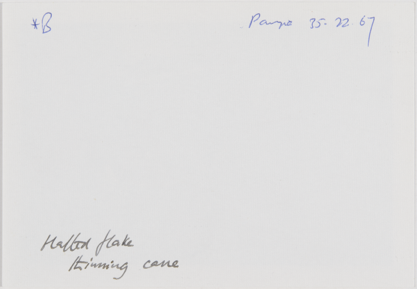 *B
35-22-67
Hafted flake
thinning cane